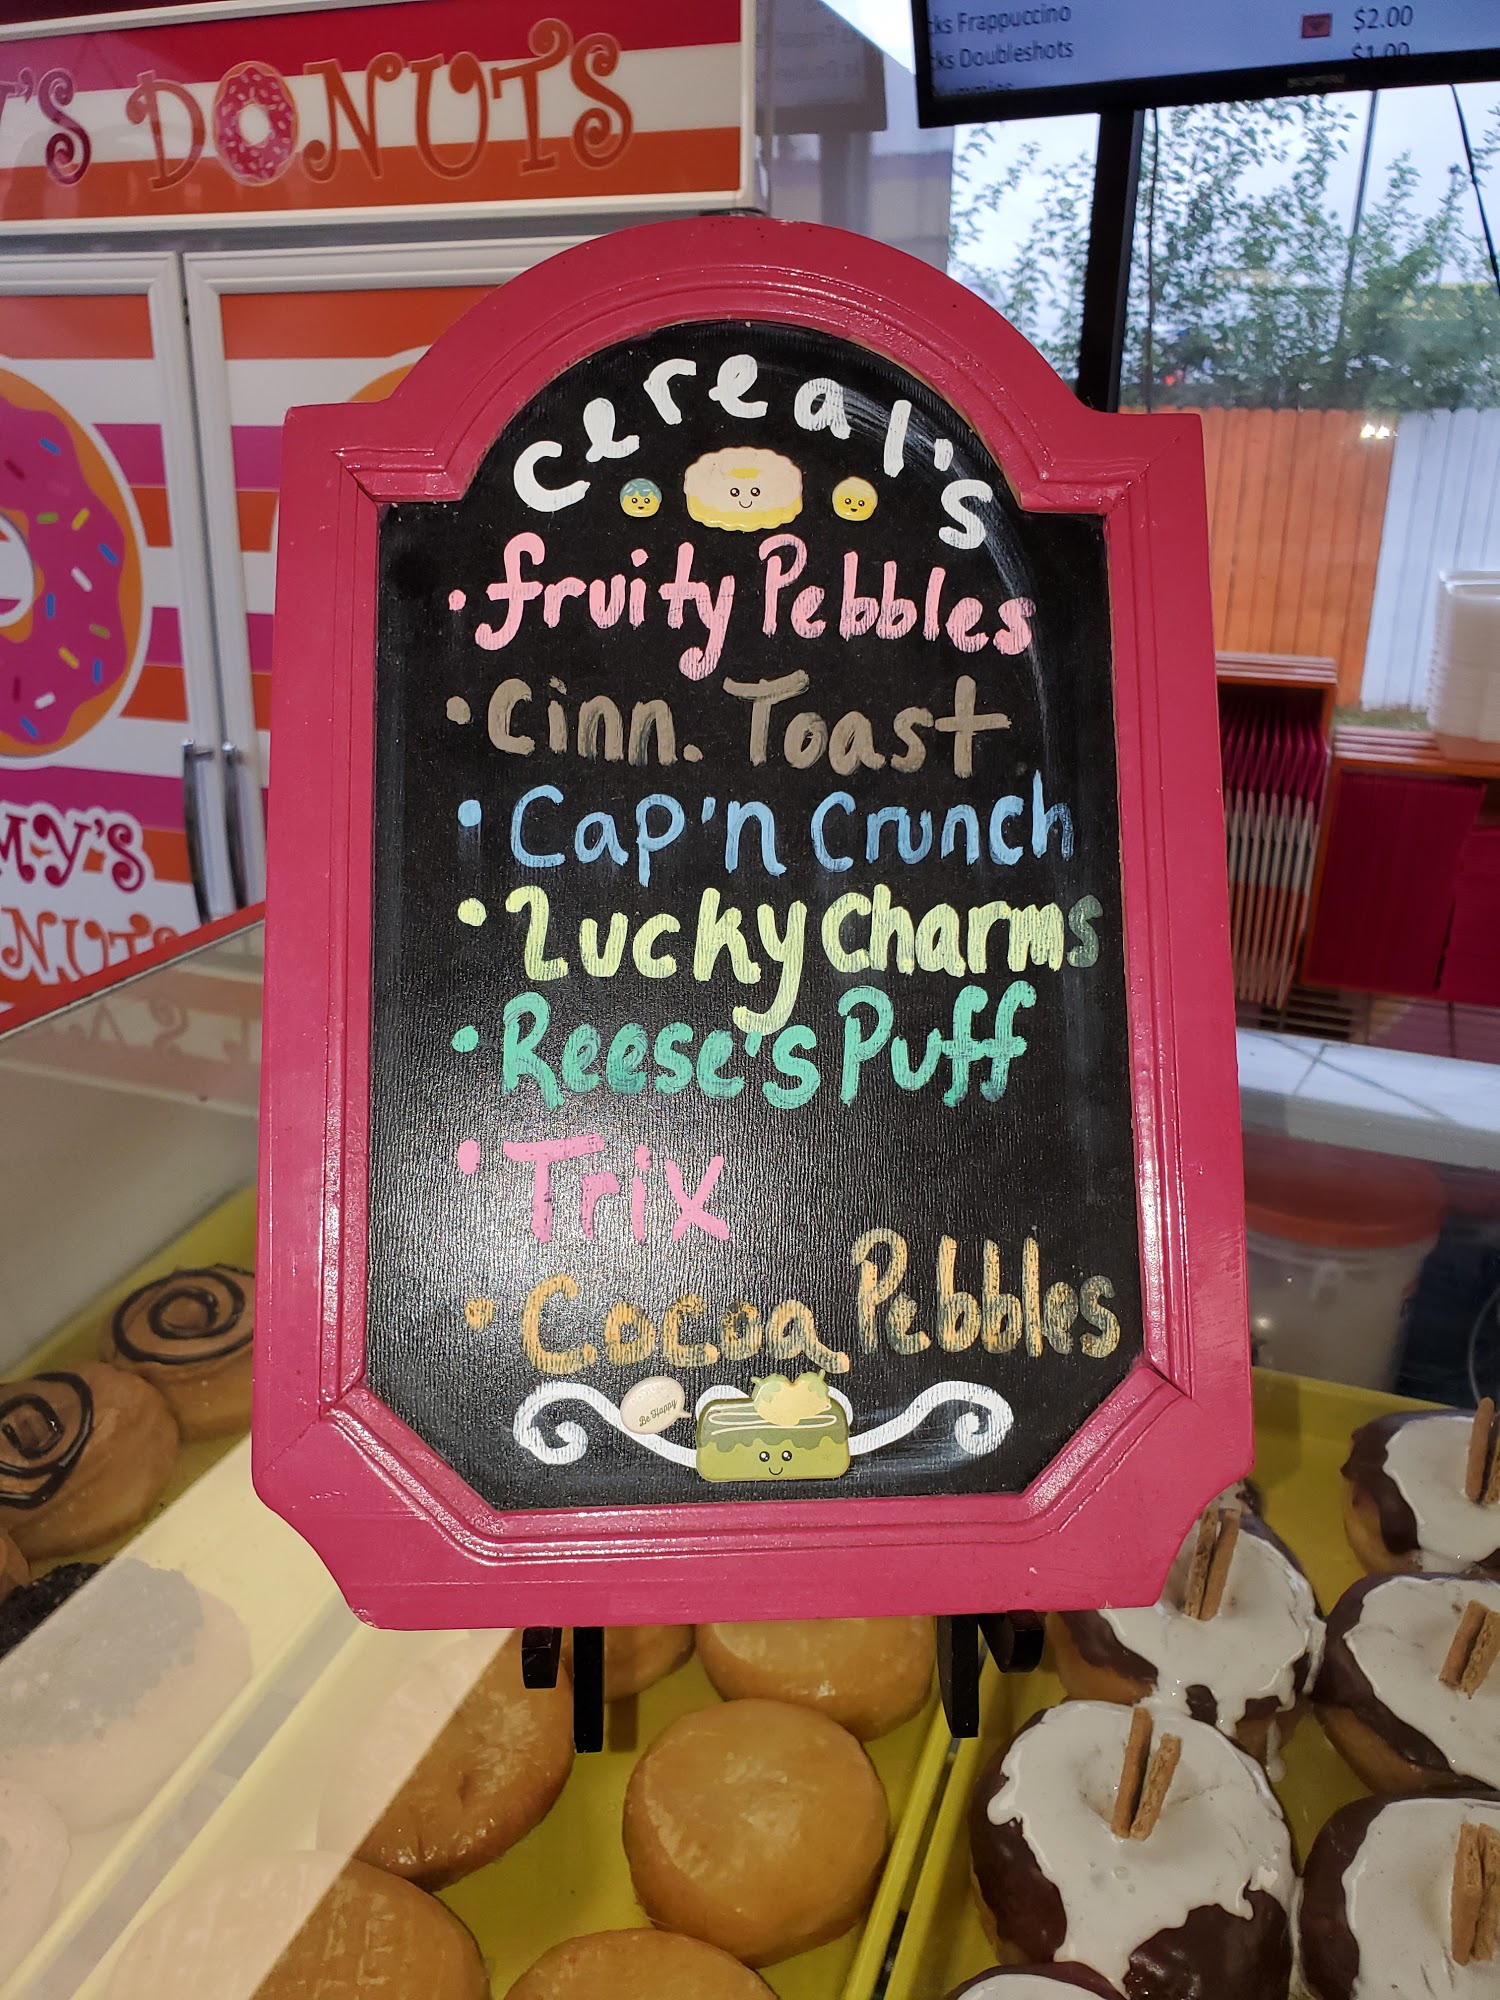 'S DONUTS
ks Frappuccino $2.00
ks Doubleshots $1.00
cereal's
• fruity Pebbles
• Cinn. Toast
• Cap'n Crunch
• Lucky Charms
• Reese's Puff
• Trix
• Cocoa Pebbles
Be Happy
MY'S
NUTS